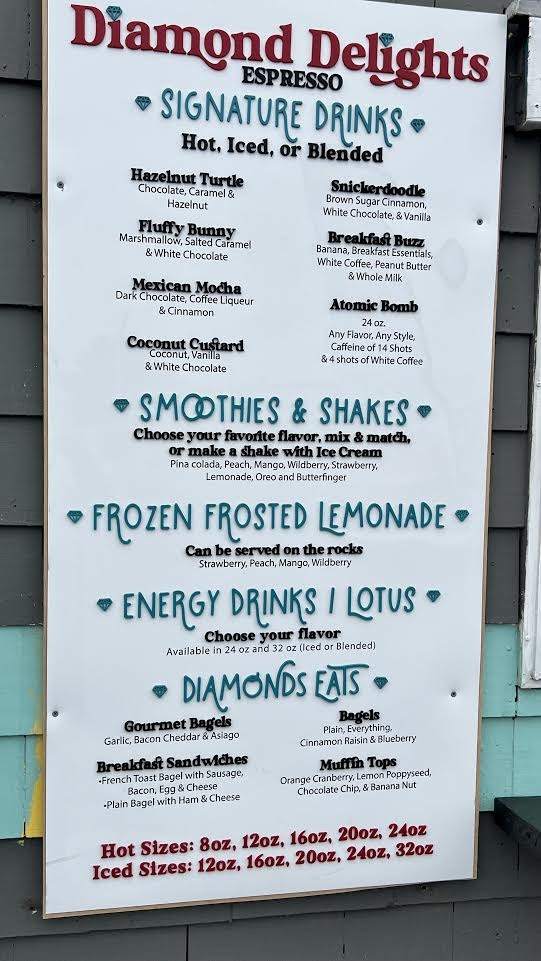 Diamond Delights
ESPRESSO
SIGNATURE DRINKS
Hot, Iced, or Blended
Hazelnut Turtle
Chocolate, Caramel &
Hazelnut
Fluffy Bunny
Marshmallow, Salted Caramel
& White Chocolate
Mexican Mocha
Dark Chocolate, Coffee Liqueur
& Cinnamon
Coconut Custard
Coconut, Vanilla
& White Chocolate
Snickerdoodle
Brown Sugar Cinnamon,
White Chocolate, & Vanilla
Breakfast Buzz
Banana, Breakfast Essentials,
White Coffee, Peanut Butter
& Whole Milk
Atomic Bomb
24 oz.
Any Flavor, Any Style,
Caffeine of 14 Shots
& 4 shots of White Coffee
SMOOTHIES & SHAKES
Choose your favorite flavor, mix & match,
or make a shake with Ice Cream
Pina colada, Peach, Mango, Wildberry, Strawberry,
Lemonade, Oreo and Butterfinger
FROZEN FROSTED LEMONADE
Can be served on the rocks
Strawberry, Peach, Mango, Wildberry
ENERGY DRINKS / LOTUS
Choose your flavor
Available in 24 oz and 32 oz (Iced or Blended)
DIAMONDS EATS
Gourmet Bagels
Garlic, Bacon Cheddar & Asiago
Breakfast Sandwiches
•French Toast Bagel with Sausage,
Bacon, Egg & Cheese
•Plain Bagel with Ham & Cheese
Bagels
Plain, Everything,
Cinnamon Raisin & Blueberry
Muffin Tops
Orange Cranberry, Lemon Poppyseed,
Chocolate Chip, & Banana Nut
Hot Sizes: 8oz, 12oz, 16oz, 20oz, 24oz
Iced Sizes: 12oz, 16oz, 20oz, 24oz, 32oz